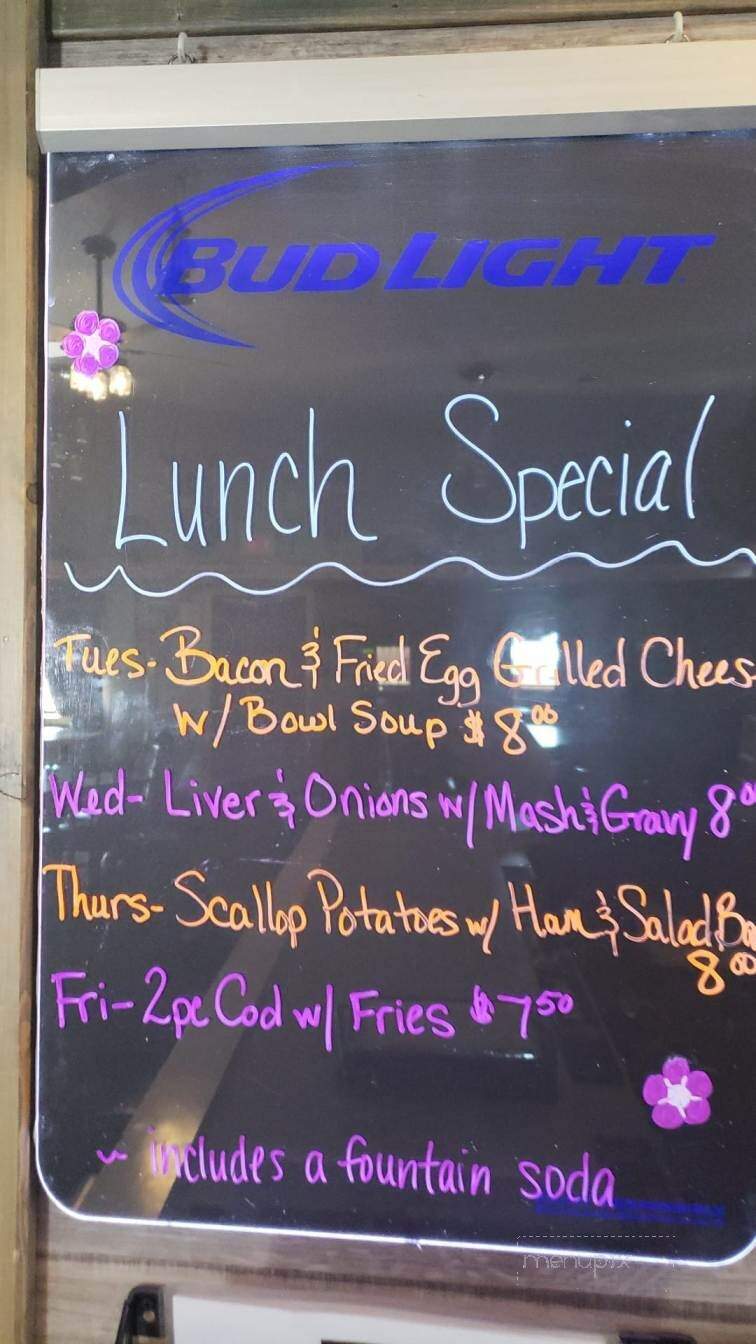 BUD LIGHT
Lunch Special
Tues- Bacon & Fried Egg Grilled Chees
W/ Bowl Soup $ 8.00
Wed- Liver & Onions w/ Mash & Gravy 8.00
Thurs- Scallop Potatoes w/ Ham & Salad Ba
8.00
Fri- 2pc Cod w/ Fries $ 7.50
~ includes a fountain soda
menupix